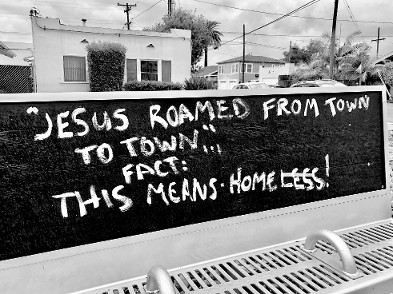 "JESUS ROAMED FROM TOWN
TO TOWN";
FACT:
THIS MEANS·HOMELESS!